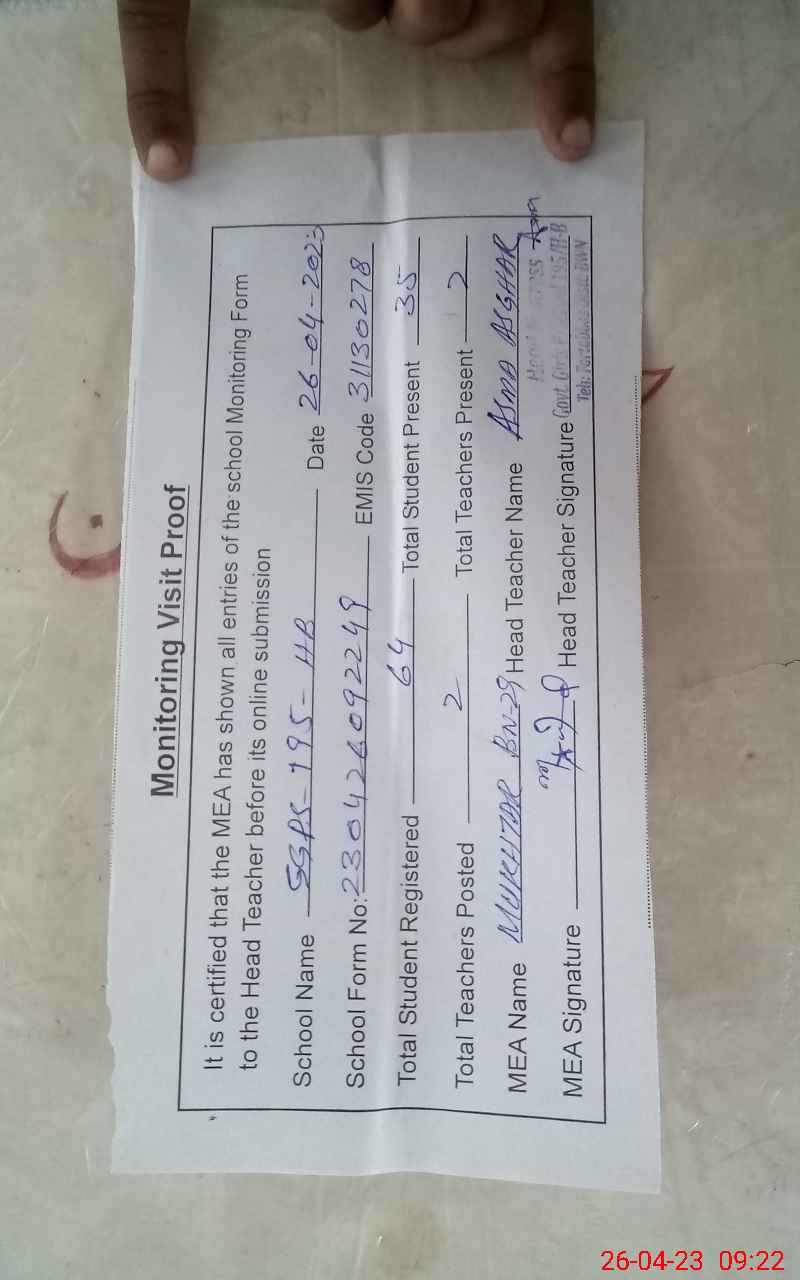 Monitoring Visit Proof
It is certified that the MEA has shown all entries of the school Monitoring Form
to the Head Teacher before its online submission
School Name GGPS-195-HB Date 26-04-2023
School Form No: 230426092249 EMIS Code 31130278
Total Student Registered 64 Total Student Present 35
Total Teachers Posted 2 Total Teachers Present 2
MEA Name MUKHTAR BN-29 Head Teacher Name ASMA ASGHAR
MEA Signature Head Teacher Signature Asma
Govt. Girls 195/H-B
Teh: BWN
26-04-23 09:22